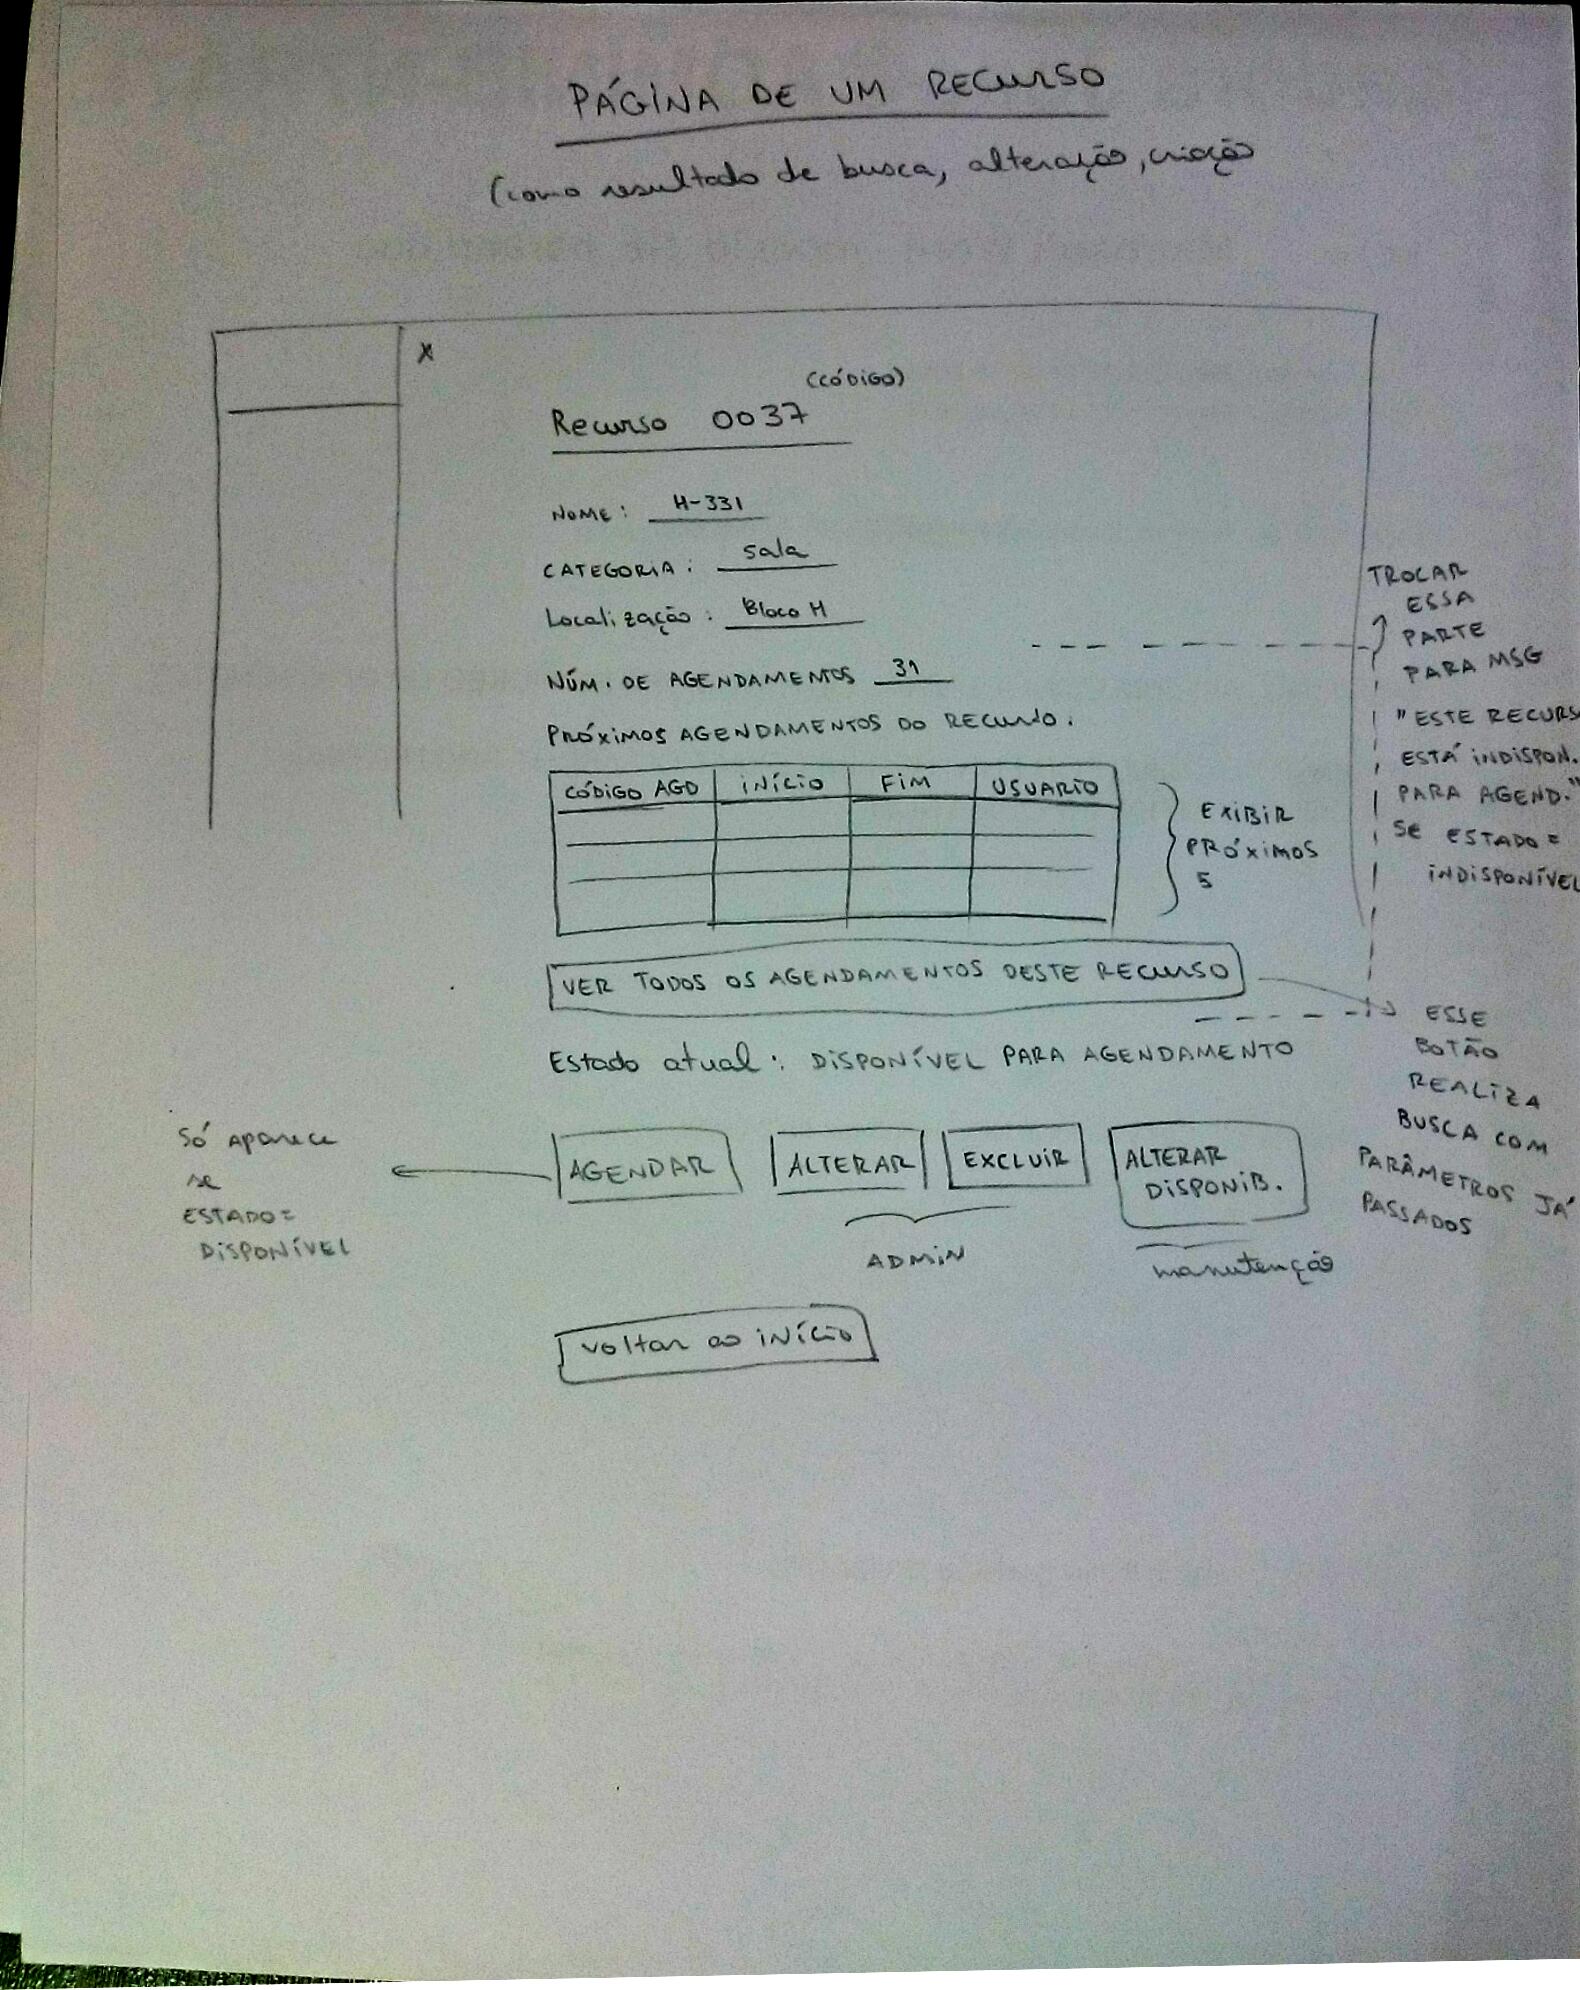 PÁGINA DE UM RECURSO
(como resultado de busca, alteração, criação
x
(CÓDIGO)
Recurso 0037
NOME: H-331
CATEGORIA: Sala
Localização: Bloco H
NÚM. DE AGENDAMENTOS 31
PRÓXIMOS AGENDAMENTOS DO RECURSO:
CÓDIGO AGD INÍCIO FIM USUARIO
EXIBIR
PRÓXIMOS
5
TROCAR
ESSA
PARTE
PARA MSG
"ESTE RECURS
ESTÁ INDISPON.
PARA AGEND."
SE ESTADO =
INDISPONÍVEL
VER TODOS OS AGENDAMENTOS DESTE RECURSO
ESSE
BOTÃO
REALIZA
BUSCA COM
PARÂMETROS JÁ
PASSADOS
Estado atual: DISPONÍVEL PARA AGENDAMENTO
Só aparece
se
ESTADO =
DISPONÍVEL
AGENDAR ALTERAR EXCLUIR ALTERAR
DISPONIB.
ADMIN
manutenção
Voltar ao início